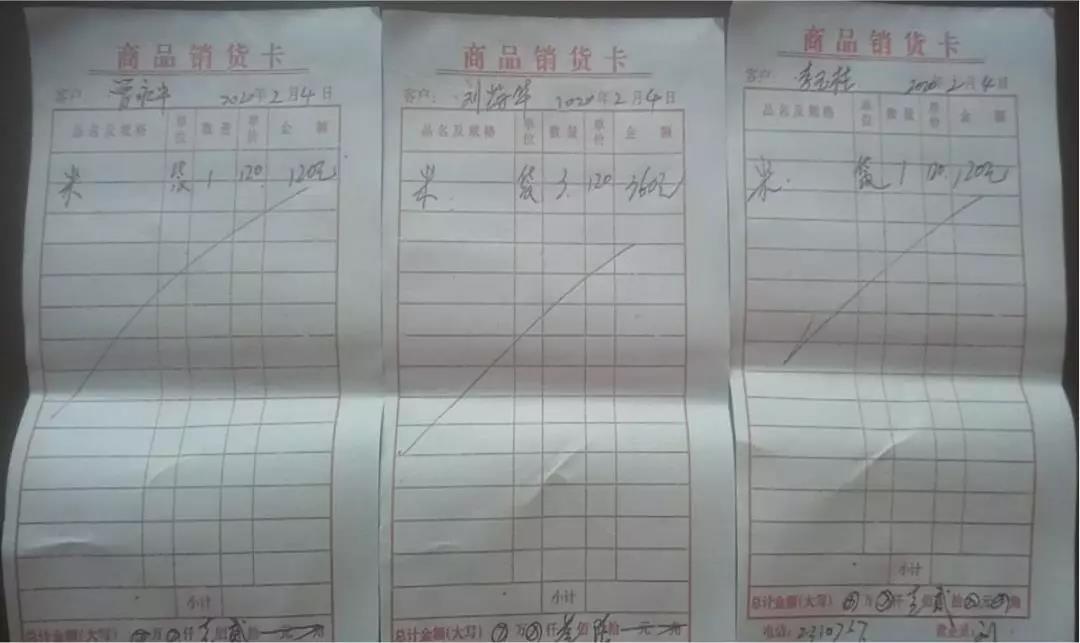 商品销货卡
客户：曾永平 2020年2月4日
品名及规格 单位 数量 单价 金额
米 袋 1 120 120元
小计
总计金额(大写) 万 仟 壹佰贰拾 元 角
商品销货卡
客户：刘 华 2020年2月4日
品名及规格 单位 数量 单价 金额
米 袋 3 120 360元
小计
总计金额(大写) 万 仟 叁佰陆拾 元 角
商品销货卡
客户：李玉桂 2020年2月4日
品名及规格 单位 数量 单价 金额
米 袋 1 120 120元
小计
总计金额(大写) 万 仟 壹佰贰拾 元 角
电话：2310757